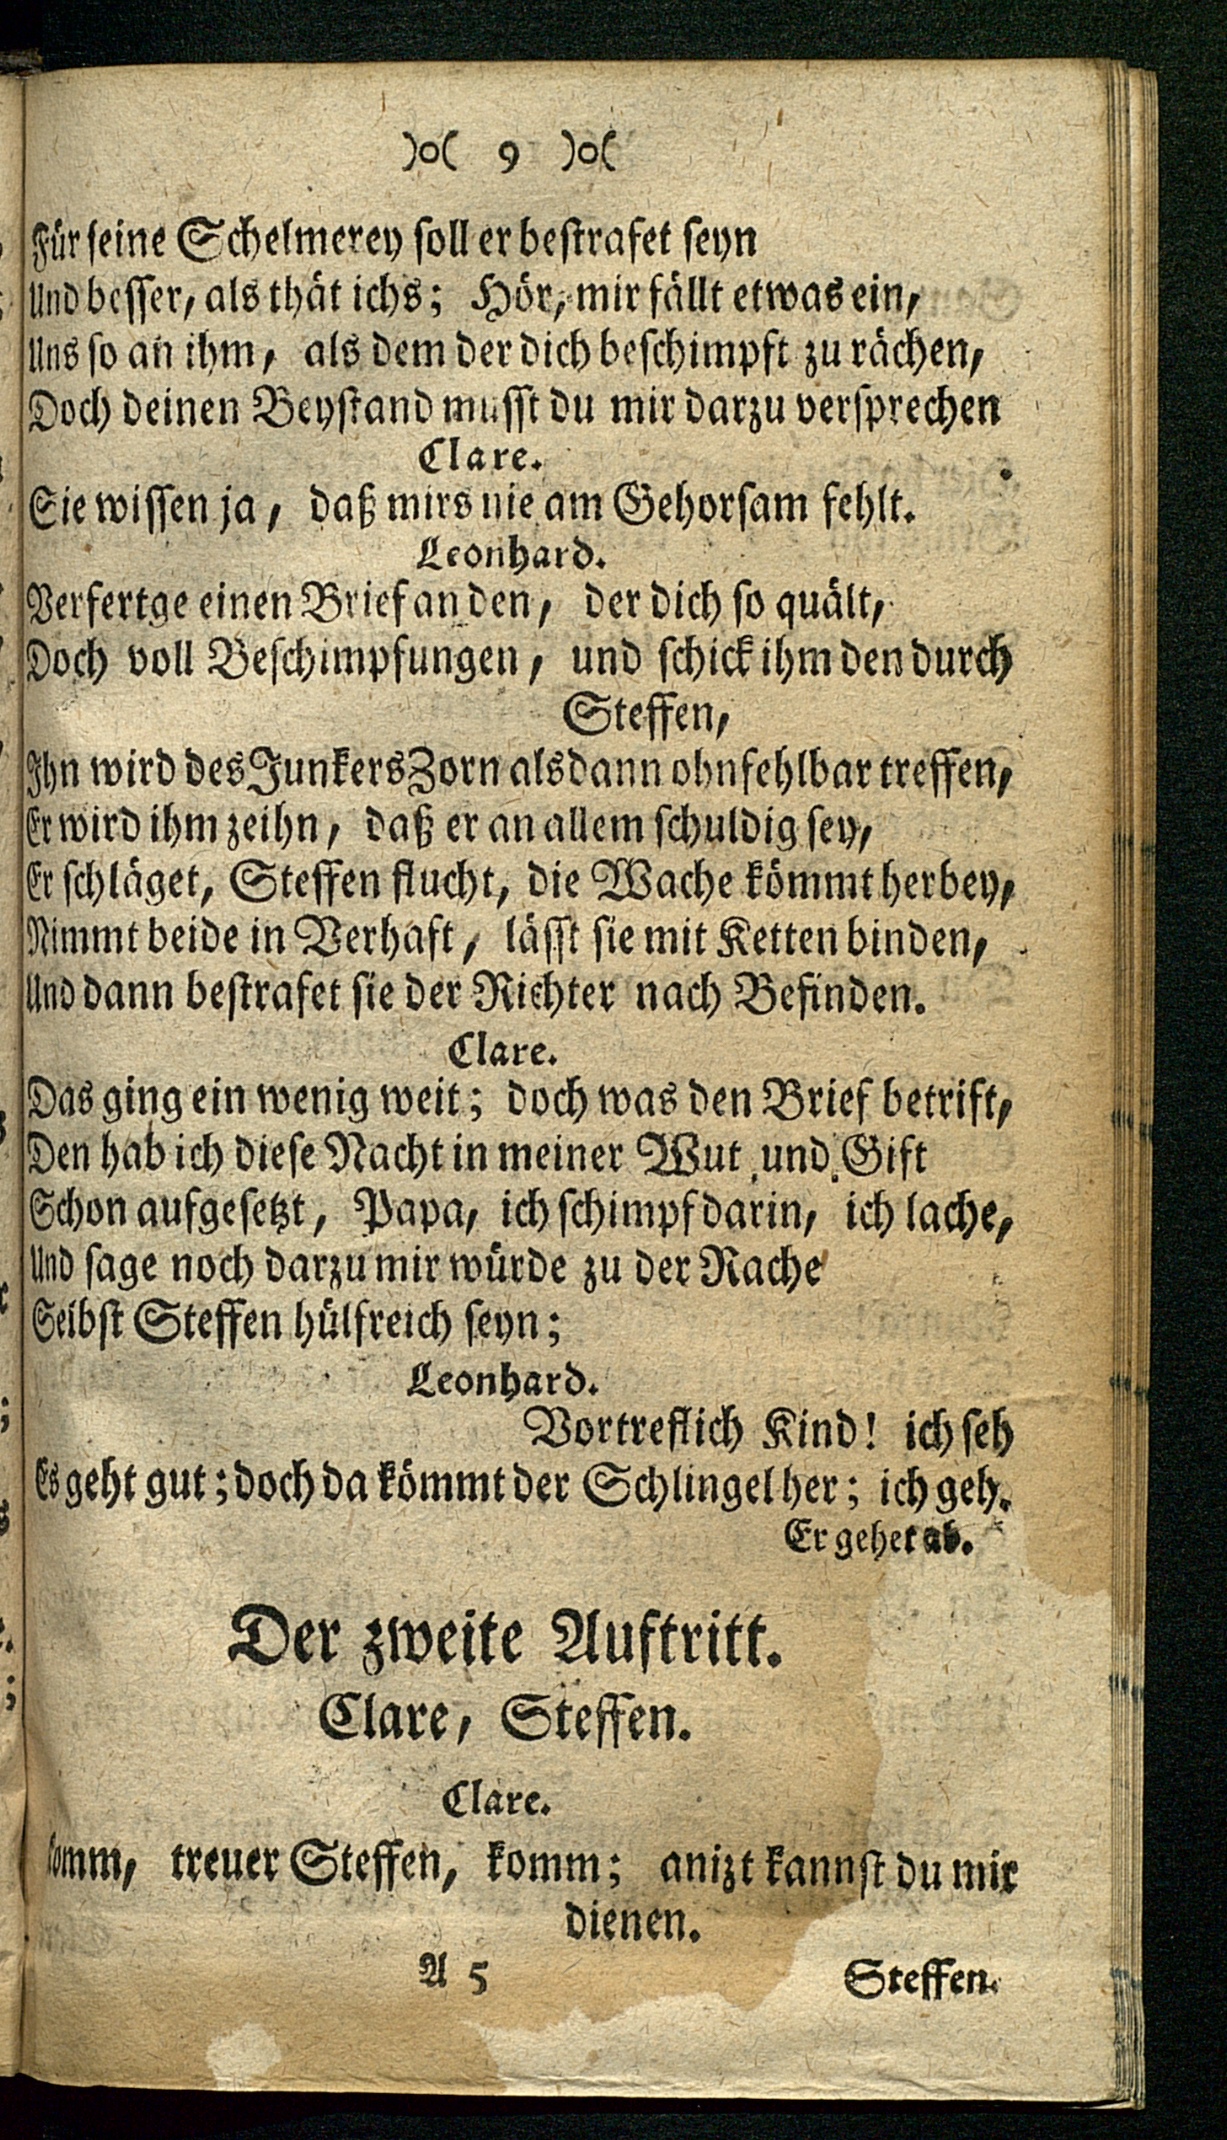 )o( 9 )o(
Für seine Schelmerey soll er bestrafet seyn
Und besser, als thät ichs; Hör, mir fällt etwas ein,
Uns so an ihm, als dem der dich beschimpft zu rächen,
Doch deinen Beystand musst du mir darzu versprechen
Clare.
Sie wissen ja, daß mirs nie am Gehorsam fehlt.
Leonhard.
Verfertge einen Brief an den, der dich so quält,
Doch voll Beschimpfungen, und schick ihm den durch
Steffen,
Ihn wird des Junkers Zorn alsdann ohnfehlbar treffen,
Er wird ihm zeihn, daß er an allem schuldig sey,
Er schläget, Steffen flucht, die Wache kömmt herbey,
Nimmt beide in Verhaft, lässt sie mit Ketten binden,
Und dann bestrafet sie der Richter nach Befinden.
Clare.
Das ging ein wenig weit; doch was den Brief betrift,
Den hab ich diese Nacht in meiner Wut und Gift
Schon aufgesetzt, Papa, ich schimpf darin, ich lache,
Und sage noch darzu mir würde zu der Rache
Selbst Steffen hülfreich seyn;
Leonhard.
Vortreflich Kind! ich seh
Es geht gut; doch da kömmt der Schlingel her; ich geh.
Er gehet ab.
Der zweite Auftritt.
Clare, Steffen.
Clare.
Komm, treuer Steffen, komm; anizt kannst du mir
dienen.
A 5 Steffen.